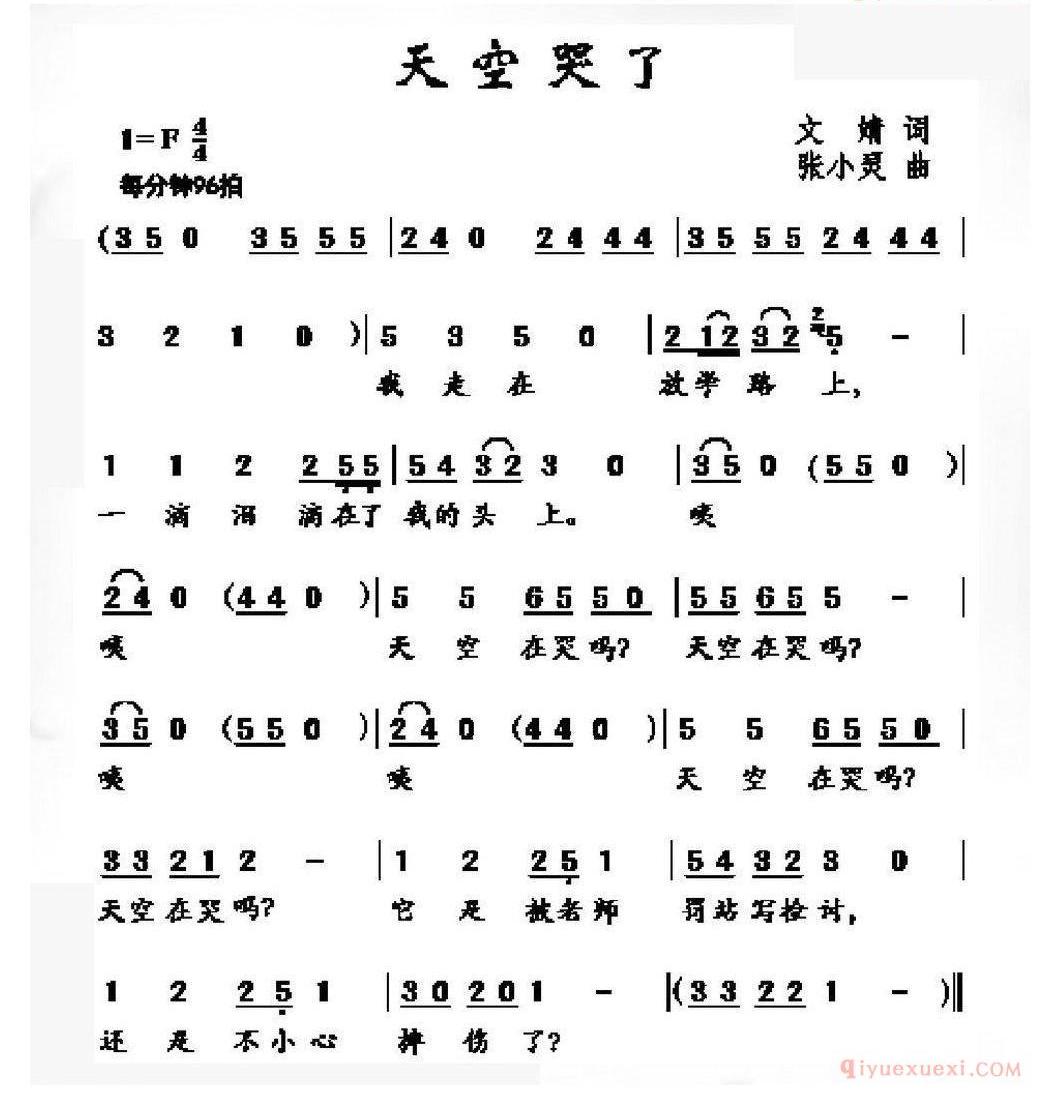 天空哭了
1=F 4/4
文 婧 词
张小灵 曲
每分钟96拍
(3 5 0 3 5 5 5 | 2 4 0 2 4 4 4 | 3 5 5 5 2 4 4 4 |
3 2 1 0 )| 5 3 5 0 | 2 1 2 3 2 2 5 - |
我 走 在 放学 路 上,
1 1 2 2 5 5 | 5 4 3 2 3 0 | 3 5 0 (5 5 0 )|
一 滴 泪 滴在了 我的头 上。 咦
2 4 0 (4 4 0 )| 5 5 6 5 5 0 | 5 5 6 5 5 - |
咦 天 空 在哭吗? 天空在哭吗?
3 5 0 (5 5 0 )| 2 4 0 (4 4 0 )| 5 5 6 5 5 0 |
咦 咦 天 空 在哭吗?
3 3 2 1 2 - | 1 2 2 5 1 | 5 4 3 2 3 0 |
天空在哭吗? 它 是 被老师 罚站写检讨,
1 2 2 5 1 | 3 0 2 0 1 - |(3 3 2 2 1 - )‖
还 是 不小心 摔 伤 了?
qiyuexuexi.com